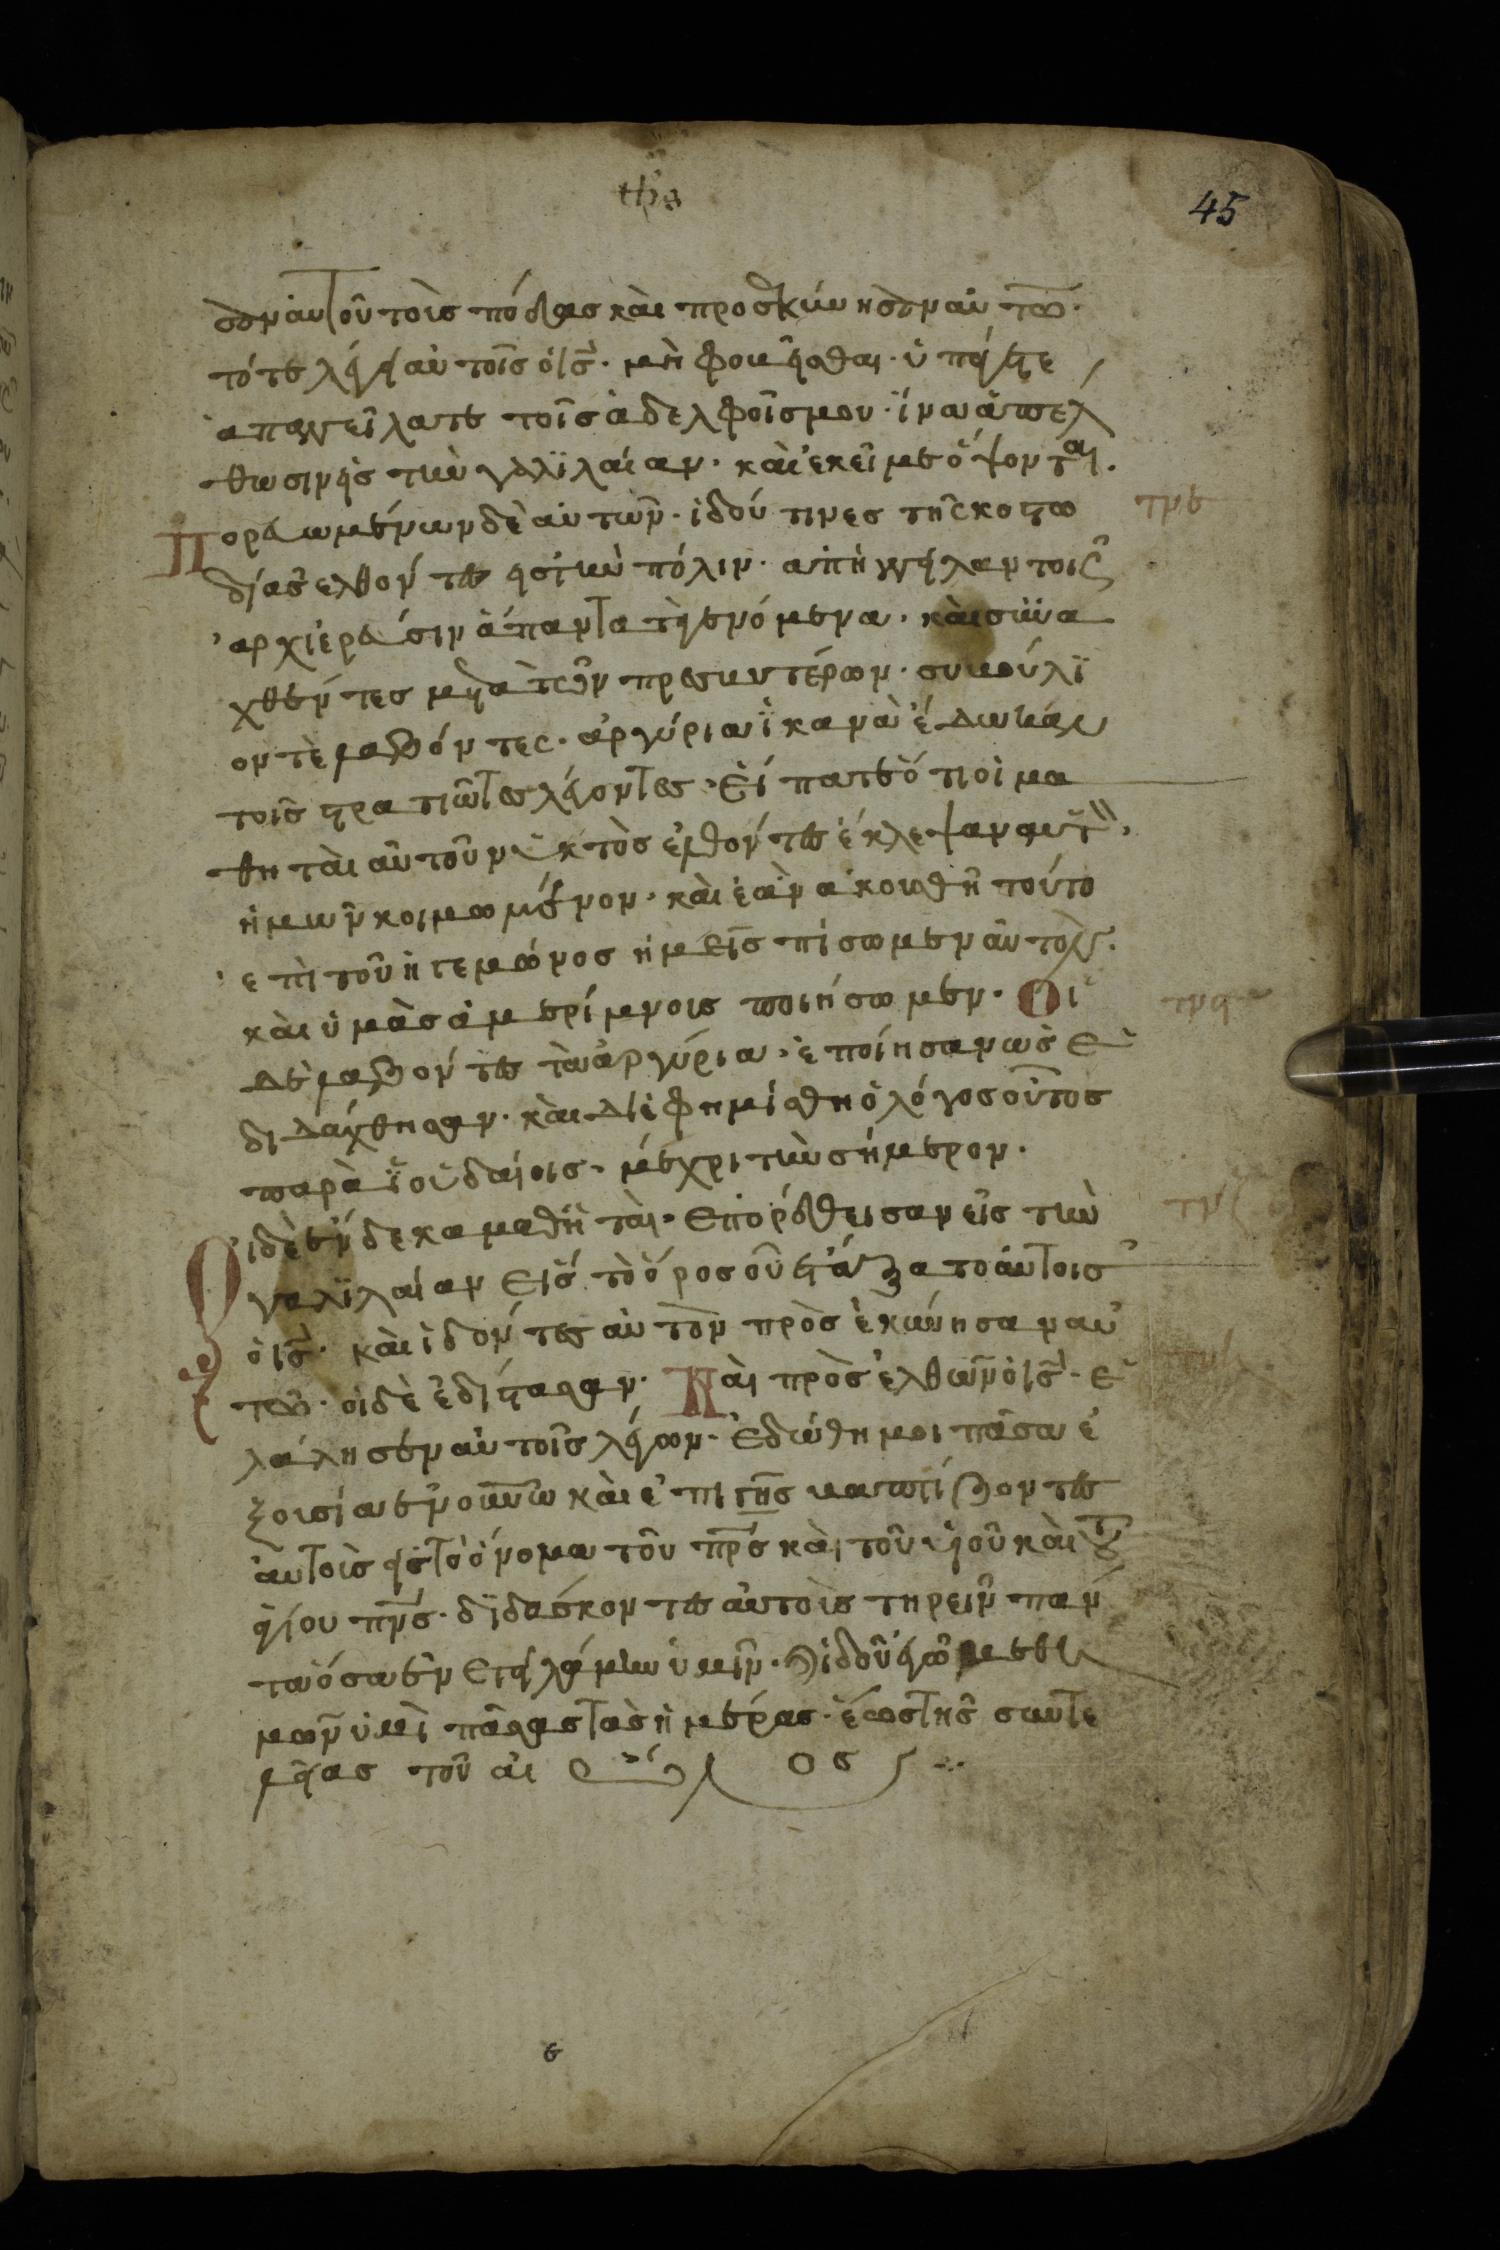 45
σαν αυτοῦ τοὺς πόδας καὶ προσεκύνησαν αὐτῶ·
τότε λέγει αὐτοῖς ὁ ις· μὴ φοβεῖσθαι· ὑπάγετε
ἀπαγγείλατε τοῖς ἀδελφοῖς μου· ἵνα ἀπελ
θωσιν εἰς τὴν γαλϊλαίαν· καὶ ἐκεῖ με ὄψονται.
Πορευωμένων δὲ αὐτῶν· ἰδού τινες τῆς κουστω
τνε
δίας ἐλθόντες εἰς τὴν πόλιν· απὴγγειλαν τοις
ἀρχιερεύσιν ἅπαντα τὰ γενόμενα· καὶ συνα
χθέντες μετὰ τῶν πρεσβυτέρων· συμβούλϊ
ον τὲ λαβόντες· ἀργύρια ἱκανὰ ἔδωκαν
τοῖς στρατιώταις λέγοντες· εἴπατε ὅτι οἱ μα
θηταὶ αὐτοῦ νυκτὸς ἐλθόντες ἔκλεψαν αυτὸν,
ἡμῶν κοιμωμένον· καὶ ἐὰν ακουσθῆ τούτο
ἐπὶ τοῦ ἡγεμώνος ἡμεῖς πίσωμεν αὐτὸν·
καὶ ὑμᾶς ἀμερίμνους ποιήσωμεν· Οι
τνϛ
δὲ λαβόντες τὰ ἀργύρια· ἐποίησαν ὡς ἐ
διδάχθησαν· καὶ διεφημίσθη ὁ λόγος οὗτος
παρὰ ἰουδαίοις· μέχρι τὴν σήμερον·
Οἱ δὲ ἕνδεκα μαθηταὶ· ἐπορέυθεισαν εἰς τὴν
τνζ
γαλϊλαίαν εἰς τὸ ὄρος οὗ ἐτάξατο αὐτοις
ὁ ις· καὶ ἰδόντες αὐτὸν πρὸσεκύνησαν αυ
τῶ· οἱ δὲ ἐδίστασαν· Καὶ πρὸσελθῶν ὁ ις· ἐ
λάλησεν αὐτοῖς λέγων· ἐδώθη μοι πᾶσα ἐ
ξουσία ἐν οὐνῶ καὶ ἐπι γῆς βαπτίζοντες
αὐτοὺς εἰς τὸ ὄνομα τοῦ πρς καὶ τοῦ υἱοῦ καὶ τοῦ
ἁγίου πνς· διδάσκοντες αὐτοὺς τηρεῖν πάν
τα ὅσα ἐνετειλάμην ὑμῖν· ἰδοὺ ἐγὼ μεθ
μῶν εἰμὶ πᾶσας τὰς ἡμέρας· ἕως τῆς συντε
λείας τοῦ αἰῶνος
ϛ